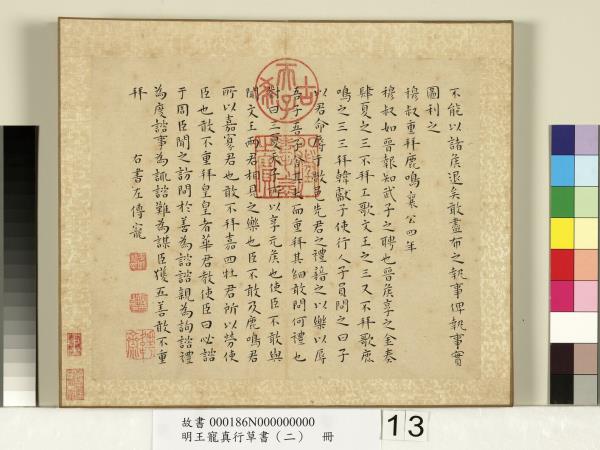 不能以諸侯退矣敢盡布之執事俾執事實
圖利之
穆叔重拜鹿鳴襄公四年
穆叔如晉報知武子之聘也晉侯享之金奏
肆夏之三不拜工歌文王之三又不拜歌鹿
鳴之三三拜韓獻子使行人子員問之曰子
以君命辱于敝邑先君之禮藉之以樂以辱
吾子吾子舍其大而重拜其細敢問何禮也
對曰三夏天子所以享元侯也使臣不敢與
聞文王兩君相見之樂也臣不敢及鹿鳴君
所以嘉寡君也敢不拜嘉四牡君所以勞使
臣也敢不重拜皇皇者華君教使臣曰必諮
于周臣聞之訪問於善為諮諮親為詢諮禮
為度諮事為諏諮難為謀臣獲五善敢不重
拜
右書左傳寵
故書 000186N000000000
明王寵真行草書（二） 冊
13